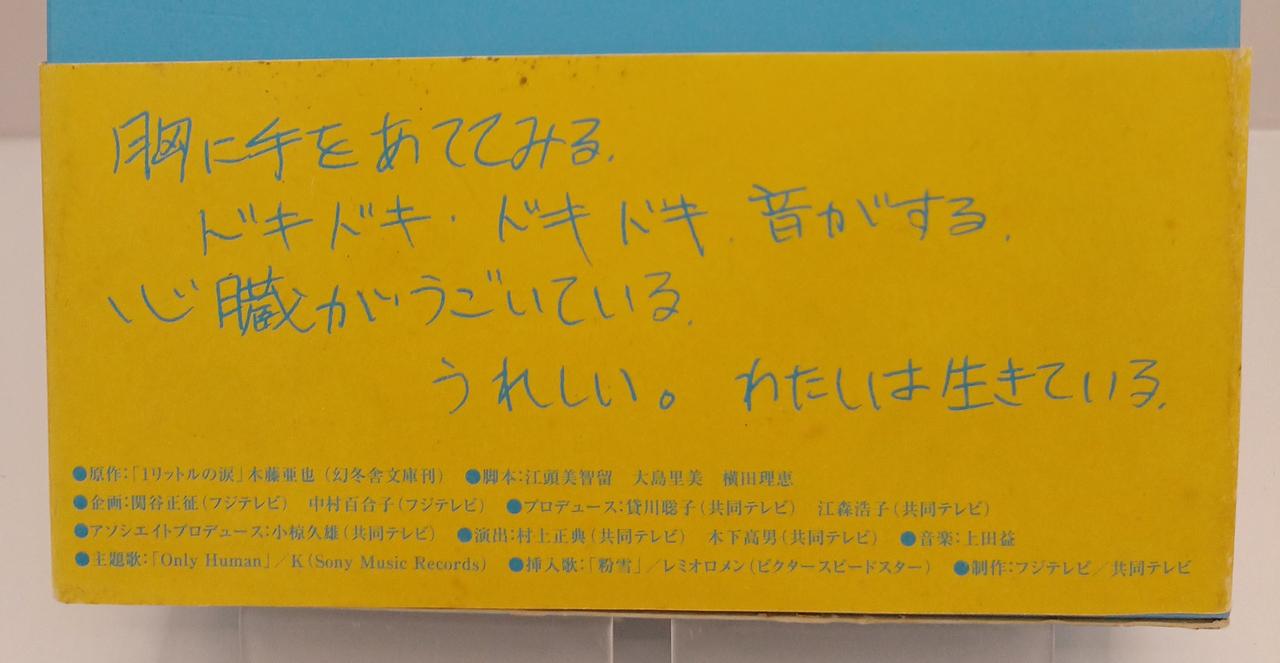 胸に手をあててみる.
ドキドキ・ドキドキ.音がする.
心臓がうごいている.
うれしい。 わたしは生きている.
●原作:「1リットルの涙」木藤亜也(幻冬舎文庫刊) ●脚本:江頭美智留 大島里美 横田理恵
●企画:関谷正征(フジテレビ) 中村百合子(フジテレビ) ●プロデュース:貸川聡子(共同テレビ) 江森浩子(共同テレビ)
●アソシエイトプロデュース:小椋久雄(共同テレビ) ●演出:村上正典(共同テレビ) 木下高男(共同テレビ) ●音楽:上田益
●主題歌:「Only Human」/K(Sony Music Records) ●挿入歌:「粉雪」/レミオロメン(ビクタースピードスター) ●制作:フジテレビ/共同テレビ